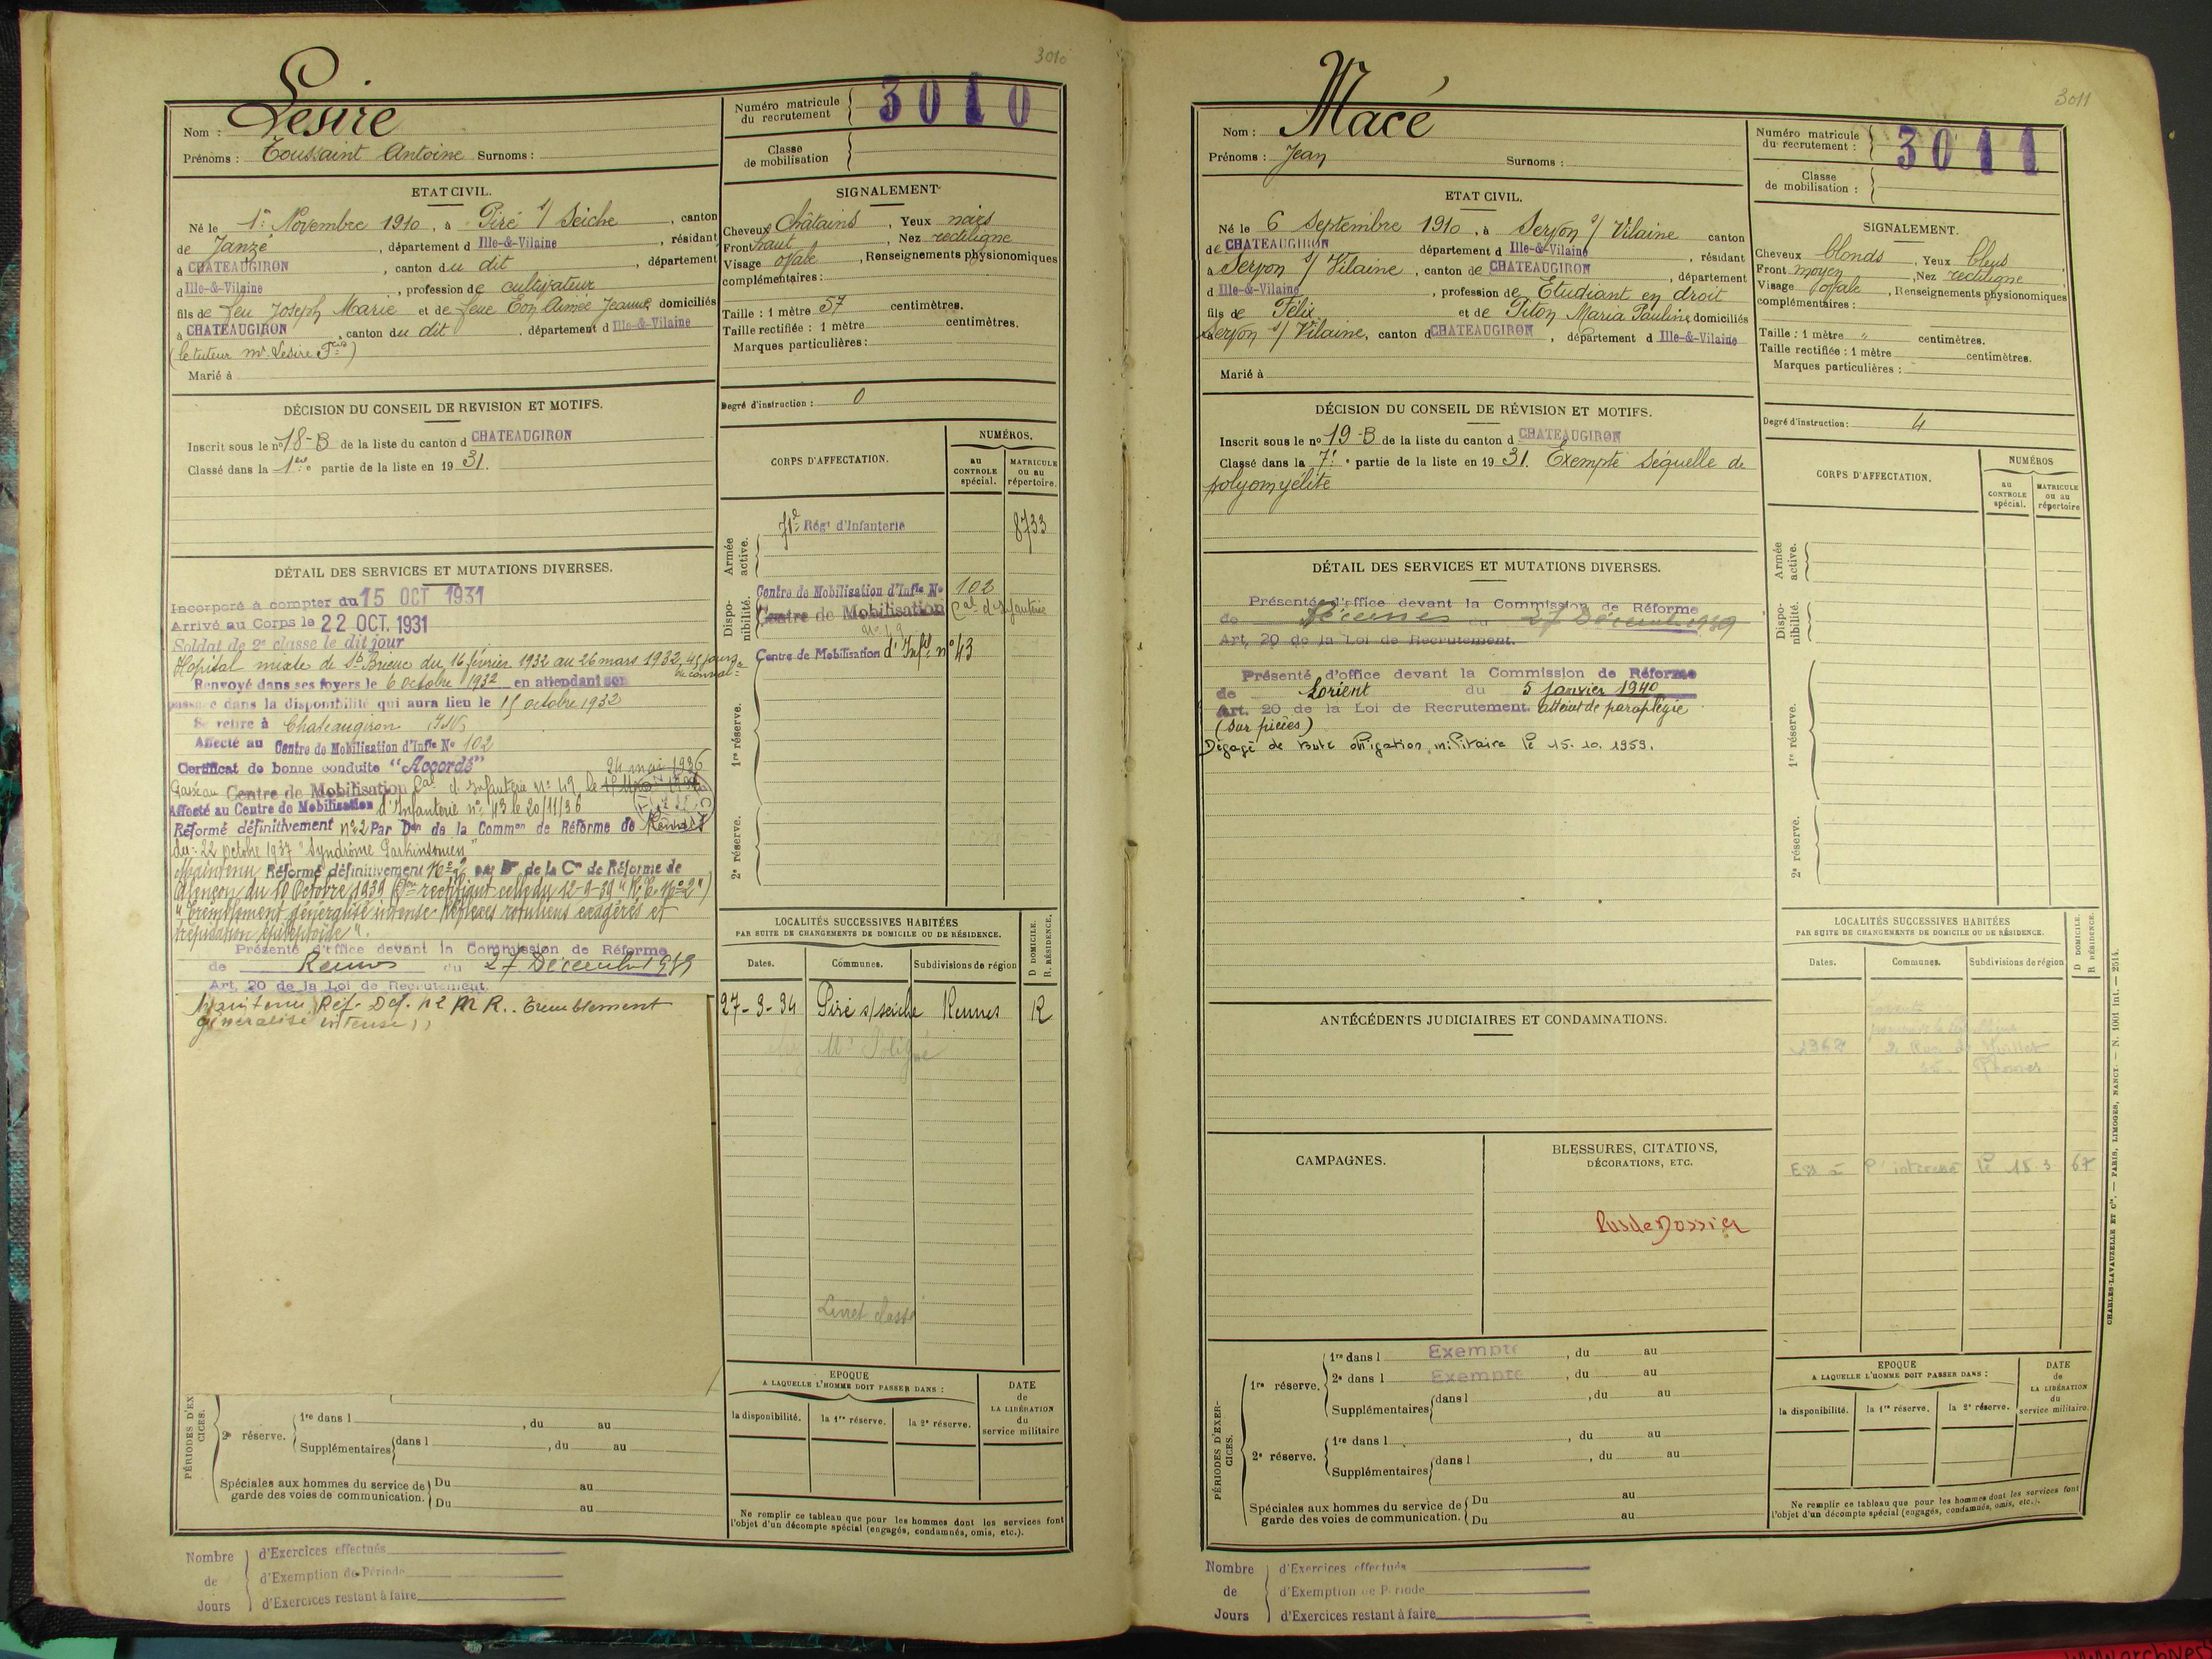 3010
Nom : Lesire
Prénoms : Toussaint Antoine Surnoms :
Numéro matricule du recrutement 3010
Classe de mobilisation
ETAT CIVIL.
Né le 1er Novembre 1910, à Piré s/ Seiche, canton
de Janzé, département d Ille-&-Vilaine, résidant
à CHATEAUGIRON, canton du dit, département
d Ille-&-Vilaine, profession de cultivateur
fils de feu Joseph Marie et de feue Eon Aimée Jeanne domiciliés
à CHATEAUGIRON, canton du dit, département d Ille-&-Vilaine
(le tuteur Mr. Lesire Fcis)
Marié à
SIGNALEMENT
Cheveux châtains, Yeux noirs
Front haut, Nez rectiligne
Visage ovale, Renseignements physionomiques
complémentaires :
Taille : 1 mètre 57 centimètres.
Taille rectifiée : 1 mètre centimètres.
Marques particulières :
Degré d'instruction : 0
DÉCISION DU CONSEIL DE REVISION ET MOTIFS.
Inscrit sous le no 18-B de la liste du canton d CHATEAUGIRON
Classé dans la 1ère partie de la liste en 19 31.
DÉTAIL DES SERVICES ET MUTATIONS DIVERSES.
Incorporé à compter du 15 OCT 1931
Arrivé au Corps le 22 OCT. 1931
Soldat de 2e classe le dit jour
Hôpital mixte de St Brieuc du 16 février 1932 au 26 mars 1932, 45 jours
de conval.
Renvoyé dans ses foyers le 6 octobre 1932 en attendant son
passage dans la disponibilité qui aura lieu le 15 octobre 1932
Se retire à Chateaugiron I&V
Affecté au Centre de Mobilisation d'Infie No 102
Certificat de bonne conduite "Accordé"
24 mai 1936
Passé au Centre de Mobilisation Cal d'Infanterie No 49 le
Affecté au Centre de Mobilisation d'Infanterie no 43 le 20/11/36
Réformé définitivement no 2 Par Don de la Common de Réforme de Rennes
du : 22 octobre 1937 "Syndrôme Parkinsonien"
Maintenu Réformé définitivement No 2 par Don de la Con de Réforme de
Alençon du 10 Octobre 1939 (Don rectifiant celle du 12-9-39 "R.T. No 2")
"Tremblement généralisé intense Réflexes rotuliens exagérés et
trépidation épileptoïde".
Présenté d'office devant la Commission de Réforme
de Rennes du 27 Décembre 1939
Art. 20 de la Loi de Recrutement.
Maintenu Réf. Def. no 2 M R.. Tremblement
généralisé intense))
CORPS D'AFFECTATION.
NUMÉROS.
au CONTROLE spécial.
MATRICULE ou au répertoire.
Armée active.
71e Régt d'Infanterie 8733
Dispo-nibilité.
Centre de Mobilisation d'Infie No 102
Centre de Mobilisation Cal d'Infanterie
No 49
Centre de Mobilisation d'Infie no 43
1re réserve.
2e réserve.
LOCALITÉS SUCCESSIVES HABITÉES
PAR SUITE DE CHANGEMENTS DE DOMICILE OU DE RÉSIDENCE.
Dates. Communes. Subdivisions de région D DOMICILE. R. RÉSIDENCE.
27-3-34 Piré s/seiche Rennes R
Livret classé
EPOQUE
A LAQUELLE L'HOMME DOIT PASSER DANS :
la disponibilité. la 1re réserve. la 2e réserve.
DATE de LA LIBÉRATION du service militaire
Ne remplir ce tableau que pour les hommes dont les services font
l'objet d'un décompte spécial (engagés, condamnés, omis, etc.).
PÉRIODES D'EX
CICES.
2e réserve.
1re dans l , du au
Supplémentaires dans l , du au
Spéciales aux hommes du service de garde des voies de communication. Du au
Du au
Nombre de Jours
d'Exercices effectués
d'Exemption de Période
d'Exercices restant à faire
3011
Nom : Macé
Prénoms : Jean Surnoms :
Numéro matricule du recrutement : 3011
Classe de mobilisation :
ETAT CIVIL.
Né le 6 Septembre 1910, à Servon s/ Vilaine canton
de CHATEAUGIRON département d Ille-&-Vilaine, résidant
à Servon s/ Vilaine, canton de CHATEAUGIRON, département
d Ille-&-Vilaine, profession de Etudiant en droit
fils de Félix et de Piton Maria Pauline domiciliés
à Servon s/ Vilaine, canton d CHATEAUGIRON, département d Ille-&-Vilaine
Marié à
SIGNALEMENT.
Cheveux blonds, Yeux bleus
Front moyen, Nez rectiligne
Visage ovale, Renseignements physionomiques
complémentaires :
Taille : 1 mètre " centimètres.
Taille rectifiée : 1 mètre centimètres.
Marques particulières :
Degré d'instruction : 4
DÉCISION DU CONSEIL DE RÉVISION ET MOTIFS.
Inscrit sous le no 19-B de la liste du canton d CHATEAUGIRON
Classé dans la 7e partie de la liste en 19 31. Exempté Séquelle de
polyomyélite
DÉTAIL DES SERVICES ET MUTATIONS DIVERSES.
Présenté d'office devant la Commission de Réforme
de Rennes du 27 Décembre 1939
Art. 20 de la Loi de Recrutement.
Présenté d'office devant la Commission de Réforme
de Lorient du 5 Janvier 1940
Art. 20 de la Loi de Recrutement. atteint de paraplégie
(sur pièces)
Dégagé de toute obligation militaire le 15.10.1959.
CORPS D'AFFECTATION.
NUMÉROS
au CONTROLE spécial.
MATRICULE ou au répertoire
Armée active.
Dispo-nibilité.
1re réserve.
2e réserve.
LOCALITÉS SUCCESSIVES HABITÉES
PAR SUITE DE CHANGEMENTS DE DOMICILE OU DE RÉSIDENCE.
Dates. Communes. Subdivisions de région D DOMICILE. R RÉSIDENCE.
1962 2 Rue de
Rennes
l'intéressé le 15.3 67
ANTÉCÉDENTS JUDICIAIRES ET CONDAMNATIONS.
CAMPAGNES.
BLESSURES, CITATIONS,
DÉCORATIONS, ETC.
Pas de Dossier
PÉRIODES D'EXER-
CICES.
1re réserve.
1re dans l Exempté, du au
2e dans l Exempté, du au
Supplémentaires dans l , du au
2e réserve.
1re dans l , du au
Supplémentaires dans l , du au
Spéciales aux hommes du service de garde des voies de communication. Du au
Du au
EPOQUE
A LAQUELLE L'HOMME DOIT PASSER DANS :
la disponibilité. la 1re réserve. la 2e réserve.
DATE de LA LIBÉRATION du service militaire.
Ne remplir ce tableau que pour les hommes dont les services font
l'objet d'un décompte spécial (engagés, condamnés, omis, etc.).
Nombre de Jours
d'Exercices effectués
d'Exemption de Période
d'Exercices restant à faire
CHARLES-LAVAUZELLE ET Cie. — PARIS, LIMOGES, NANCY. — N. 1001 int. — 2514.